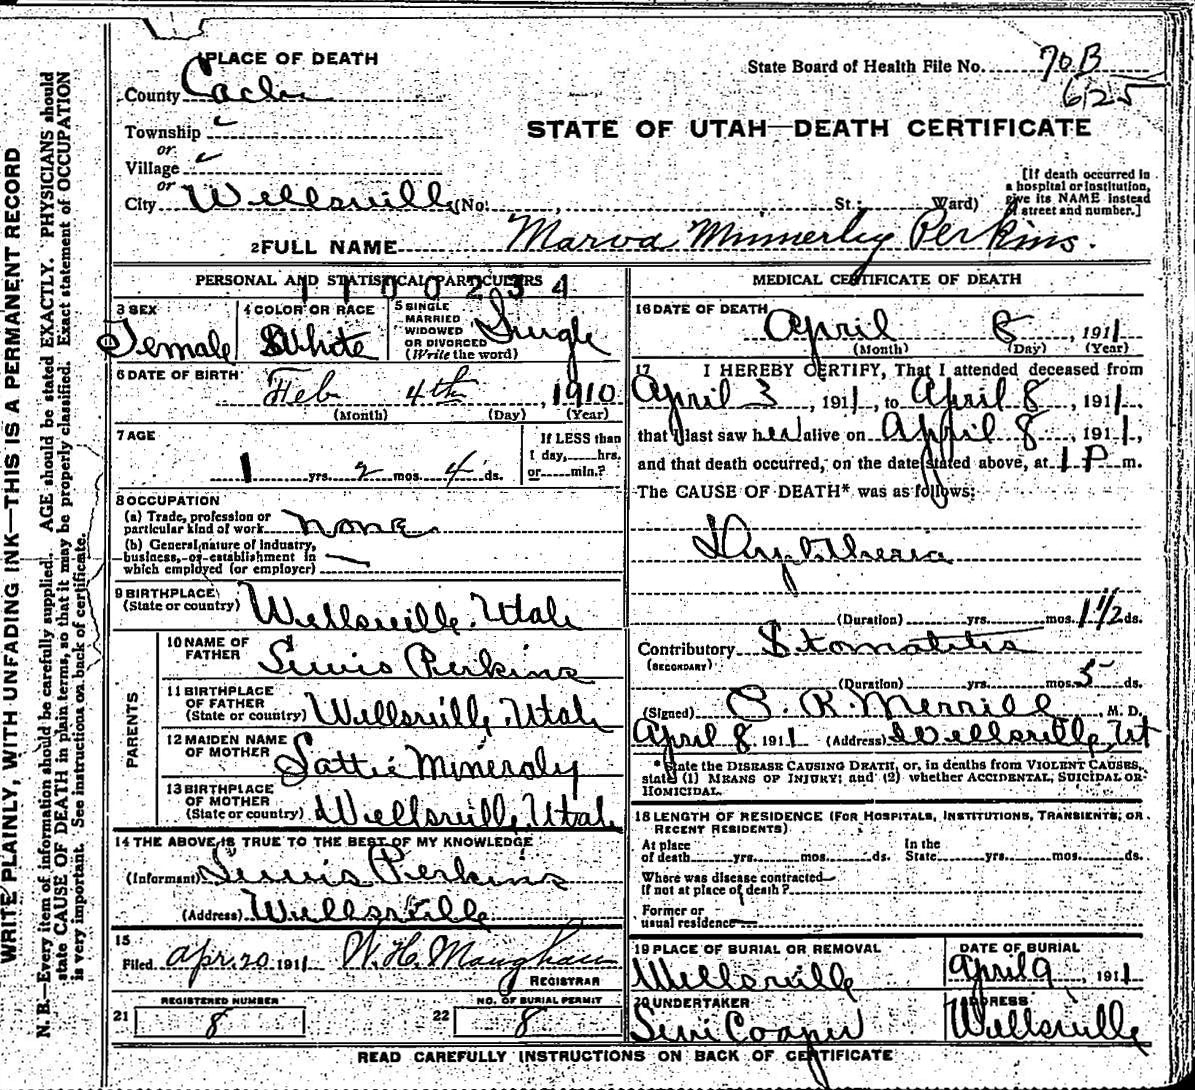 WRITE PLAINLY, WITH UNFADING INK—THIS IS A PERMANENT RECORD
N. B.—Every item of information should be carefully supplied. AGE should be stated EXACTLY. PHYSICIANS should
state CAUSE OF DEATH in plain terms, so that it may be properly classified. Exact statement of OCCUPATION
is very important. See instructions on back of certificate.
PLACE OF DEATH
County Cache
Township
or
Village
or
City Wellsville (No. St.; Ward)
State Board of Health File No. 70B
625
STATE OF UTAH—DEATH CERTIFICATE
[If death occurred in
a hospital or institution,
give its NAME instead
of street and number.]
2 FULL NAME Marva Minnerly Perkins.
PERSONAL AND STATISTICAL PARTICULERS
1100234
3 SEX Female
4 COLOR OR RACE White
5 SINGLE
MARRIED
WIDOWED
OR DIVORCED
(Write the word) Single
6 DATE OF BIRTH
Feb 4th, 1910
(Month) (Day) (Year)
7 AGE
1 yrs. 2 mos. 4 ds.
If LESS than
1 day, hrs.
or min.?
8 OCCUPATION
(a) Trade, profession or
particular kind of work none
(b) General nature of industry,
business, or establishment in
which employed (or employer)
9 BIRTHPLACE
(State or country) Wellsville, Utah
PARENTS
10 NAME OF
FATHER Lewis Perkins
11 BIRTHPLACE
OF FATHER
(State or country) Wellsville, Utah
12 MAIDEN NAME
OF MOTHER Mineraly
13 BIRTHPLACE
OF MOTHER
(State or country) Wellsville, Utah
14 THE ABOVE IS TRUE TO THE BEST OF MY KNOWLEDGE
(Informant) Lewis Perkins
(Address) Wellsville
15
Filed apr. 20 1911 W. H. Maughan
REGISTRAR
REGISTERED NUMBER
21 8
NO. OF BURIAL PERMIT
22 8
MEDICAL CERTIFICATE OF DEATH
16 DATE OF DEATH
April 8, 1911
(Month) (Day) (Year)
17 I HEREBY CERTIFY, That I attended deceased from
April 3, 1911, to April 8, 1911.
that I last saw her alive on April 8, 1911,
and that death occurred, on the date stated above, at 1 P m.
The CAUSE OF DEATH* was as follows:
(Duration) yrs. mos. 1 1/2 ds.
Contributory Stomatitis
(SECONDARY)
(Duration) yrs. mos. 5 ds.
(Signed) R. Merrill M. D.
April 8 1911 (Address) Wellsville, Ut
*State the DISEASE CAUSING DEATH, or, in deaths from VIOLENT CAUSES,
state (1) MEANS OF INJURY; and (2) whether ACCIDENTAL, SUICIDAL OR
HOMICIDAL.
18 LENGTH OF RESIDENCE (FOR HOSPITALS, INSTITUTIONS, TRANSIENTS, OR
RECENT RESIDENTS)
At place
of death yrs. mos. ds.
In the
State yrs. mos. ds.
Where was disease contracted
if not at place of death?
Former or
usual residence
19 PLACE OF BURIAL OR REMOVAL
Wellsville
DATE OF BURIAL
April 9 1911
20 UNDERTAKER
Cooper
ADDRESS
Wellsville
READ CAREFULLY INSTRUCTIONS ON BACK OF CERTIFICATE